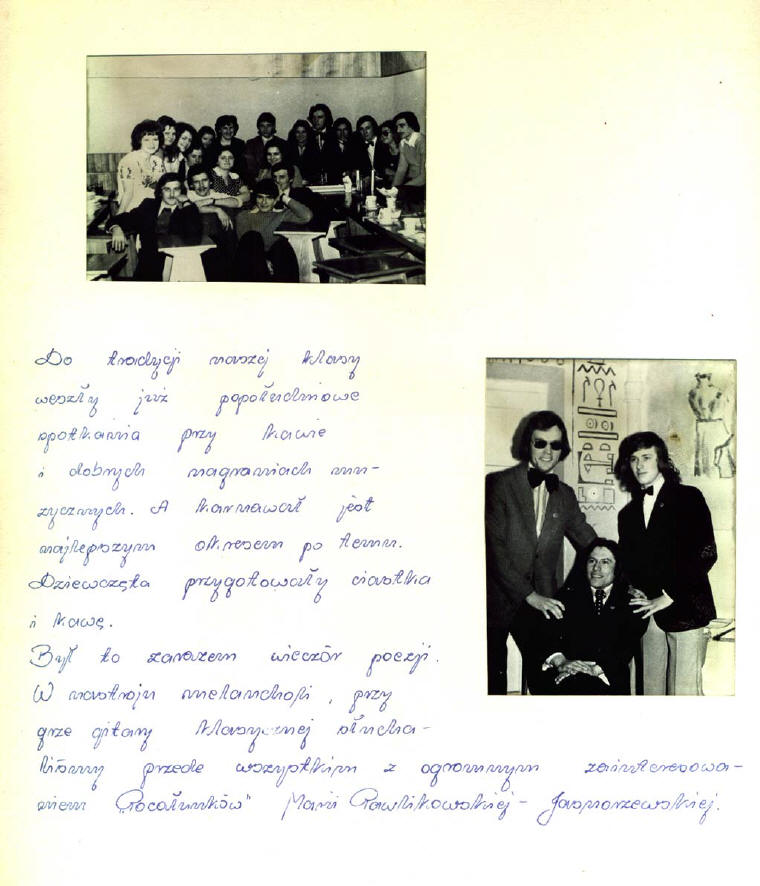 Do tradycji naszej klasy
weszły już popołudniowe
spotkania przy kawie
i dobrych nagraniach mu-
zycznych. A karnawał jest
najlepszym okresem po temu.
Dziewczęta przygotowały ciastka
i kawę.
Był to zarazem wieczór poezji.
W nastroju melancholi, przy
grze gitary klasycznej słucha-
liśmy przede wszystkim z ogromnym zainteresowa-
niem "Pocałunków" Marii Pawlikowskiej - Jasnorzewskiej.